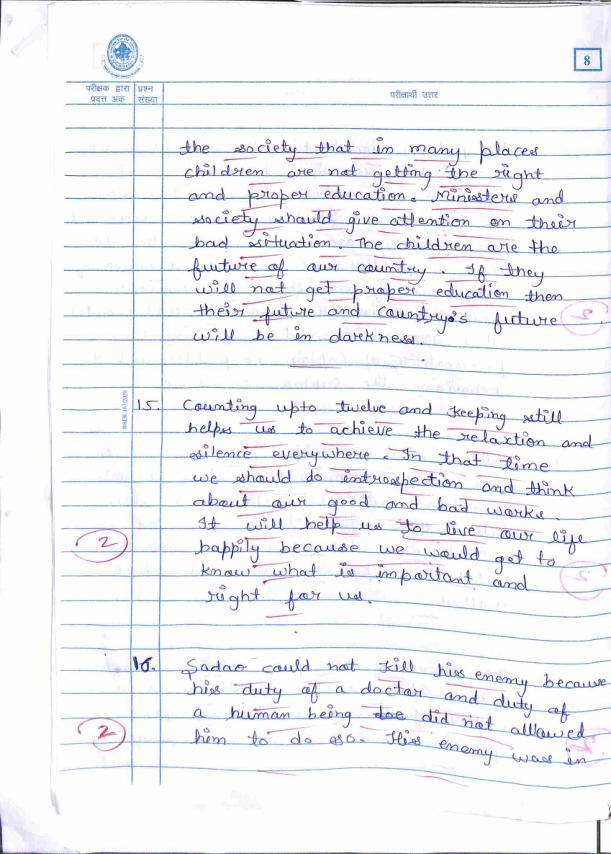 8
परीक्षक द्वारा
प्रदत्त अंक
प्रश्न
संख्या
परीक्षार्थी उत्तर
the society that in many places
children are not getting the right
and proper education. Ministers and
society should give attention on their
bad situation. The children are the
future of our country. If they
will not get proper education then
their future and country's future
will be in darkness.
15. Counting upto twelve and keeping still
helps us to achieve the relaxtion and
silence everywhere. In that time
we should do introspection and think
about our good and bad works.
It will help us to live our life
2
happily because we would get to
know what is important and
right for us.
16. Sadao could not kill his enemy because
his duty of a doctor and duty of
a human being did not allowed
2
him to do so. His enemy was in